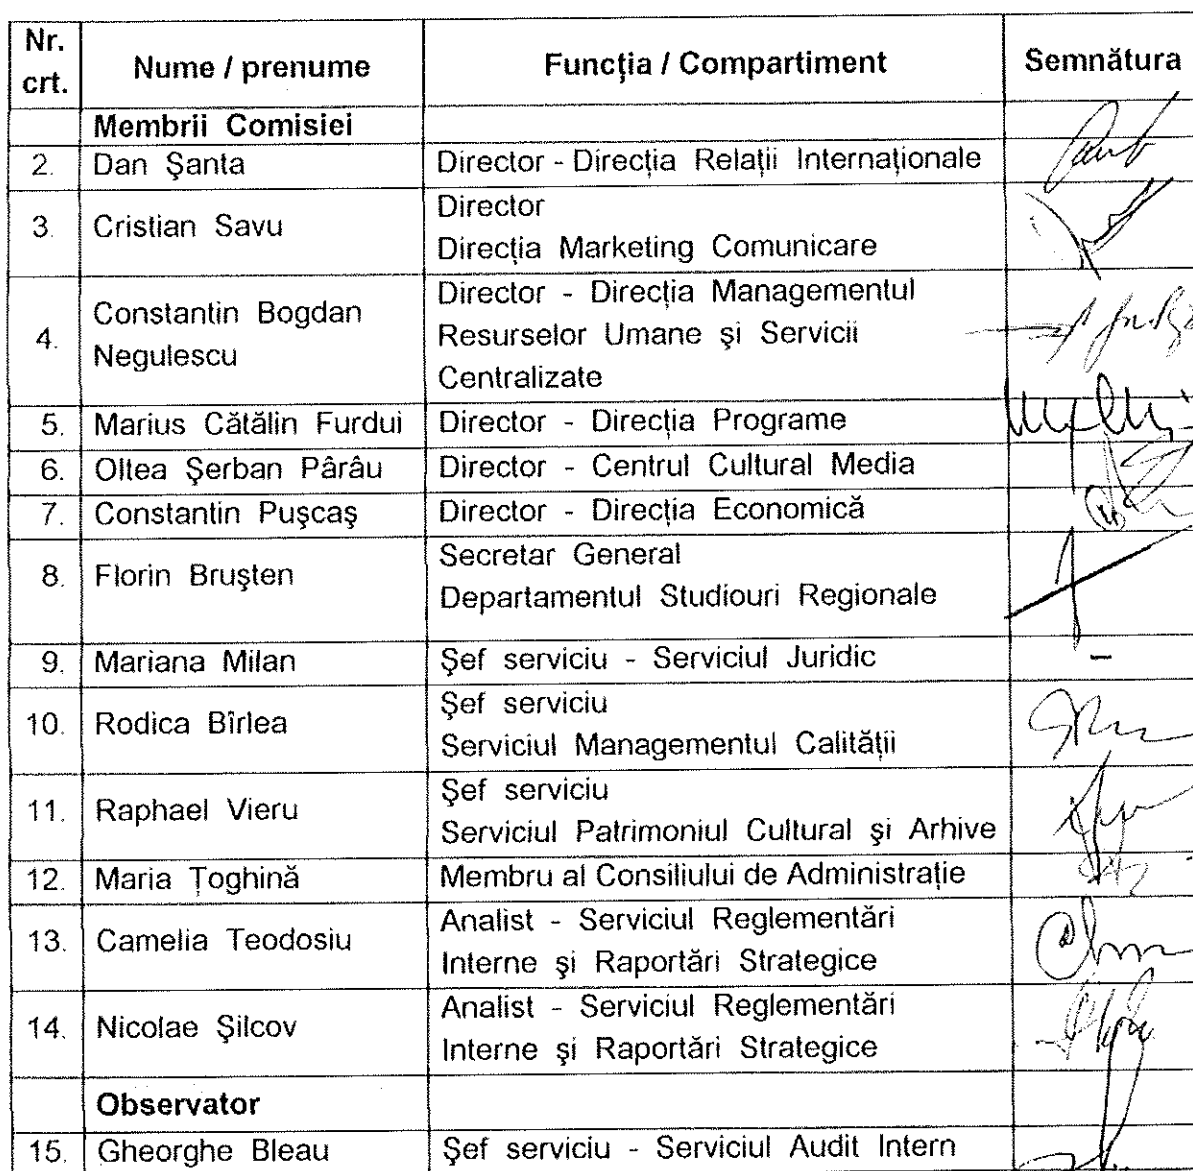 Nr. crt. Nume / prenume Funcția / Compartiment Semnătura
Membrii Comisiei
2. Dan Șanta Director - Direcția Relații Internaționale
3. Cristian Savu Director
Direcția Marketing Comunicare
4. Constantin Bogdan Negulescu Director - Direcția Managementul
Resurselor Umane și Servicii
Centralizate
5. Marius Cătălin Furdui Director - Direcția Programe
6. Oltea Șerban Pârâu Director - Centrul Cultural Media
7. Constantin Pușcaș Director - Direcția Economică
8. Florin Brușten Secretar General
Departamentul Studiouri Regionale
9. Mariana Milan Șef serviciu - Serviciul Juridic -
10. Rodica Bîrlea Șef serviciu
Serviciul Managementul Calității
11. Raphael Vieru Șef serviciu
Serviciul Patrimoniul Cultural și Arhive
12. Maria Țoghină Membru al Consiliului de Administrație
13. Camelia Teodosiu Analist - Serviciul Reglementări
Interne și Raportări Strategice
14. Nicolae Șilcov Analist - Serviciul Reglementări
Interne și Raportări Strategice
Observator
15. Gheorghe Bleau Șef serviciu - Serviciul Audit Intern